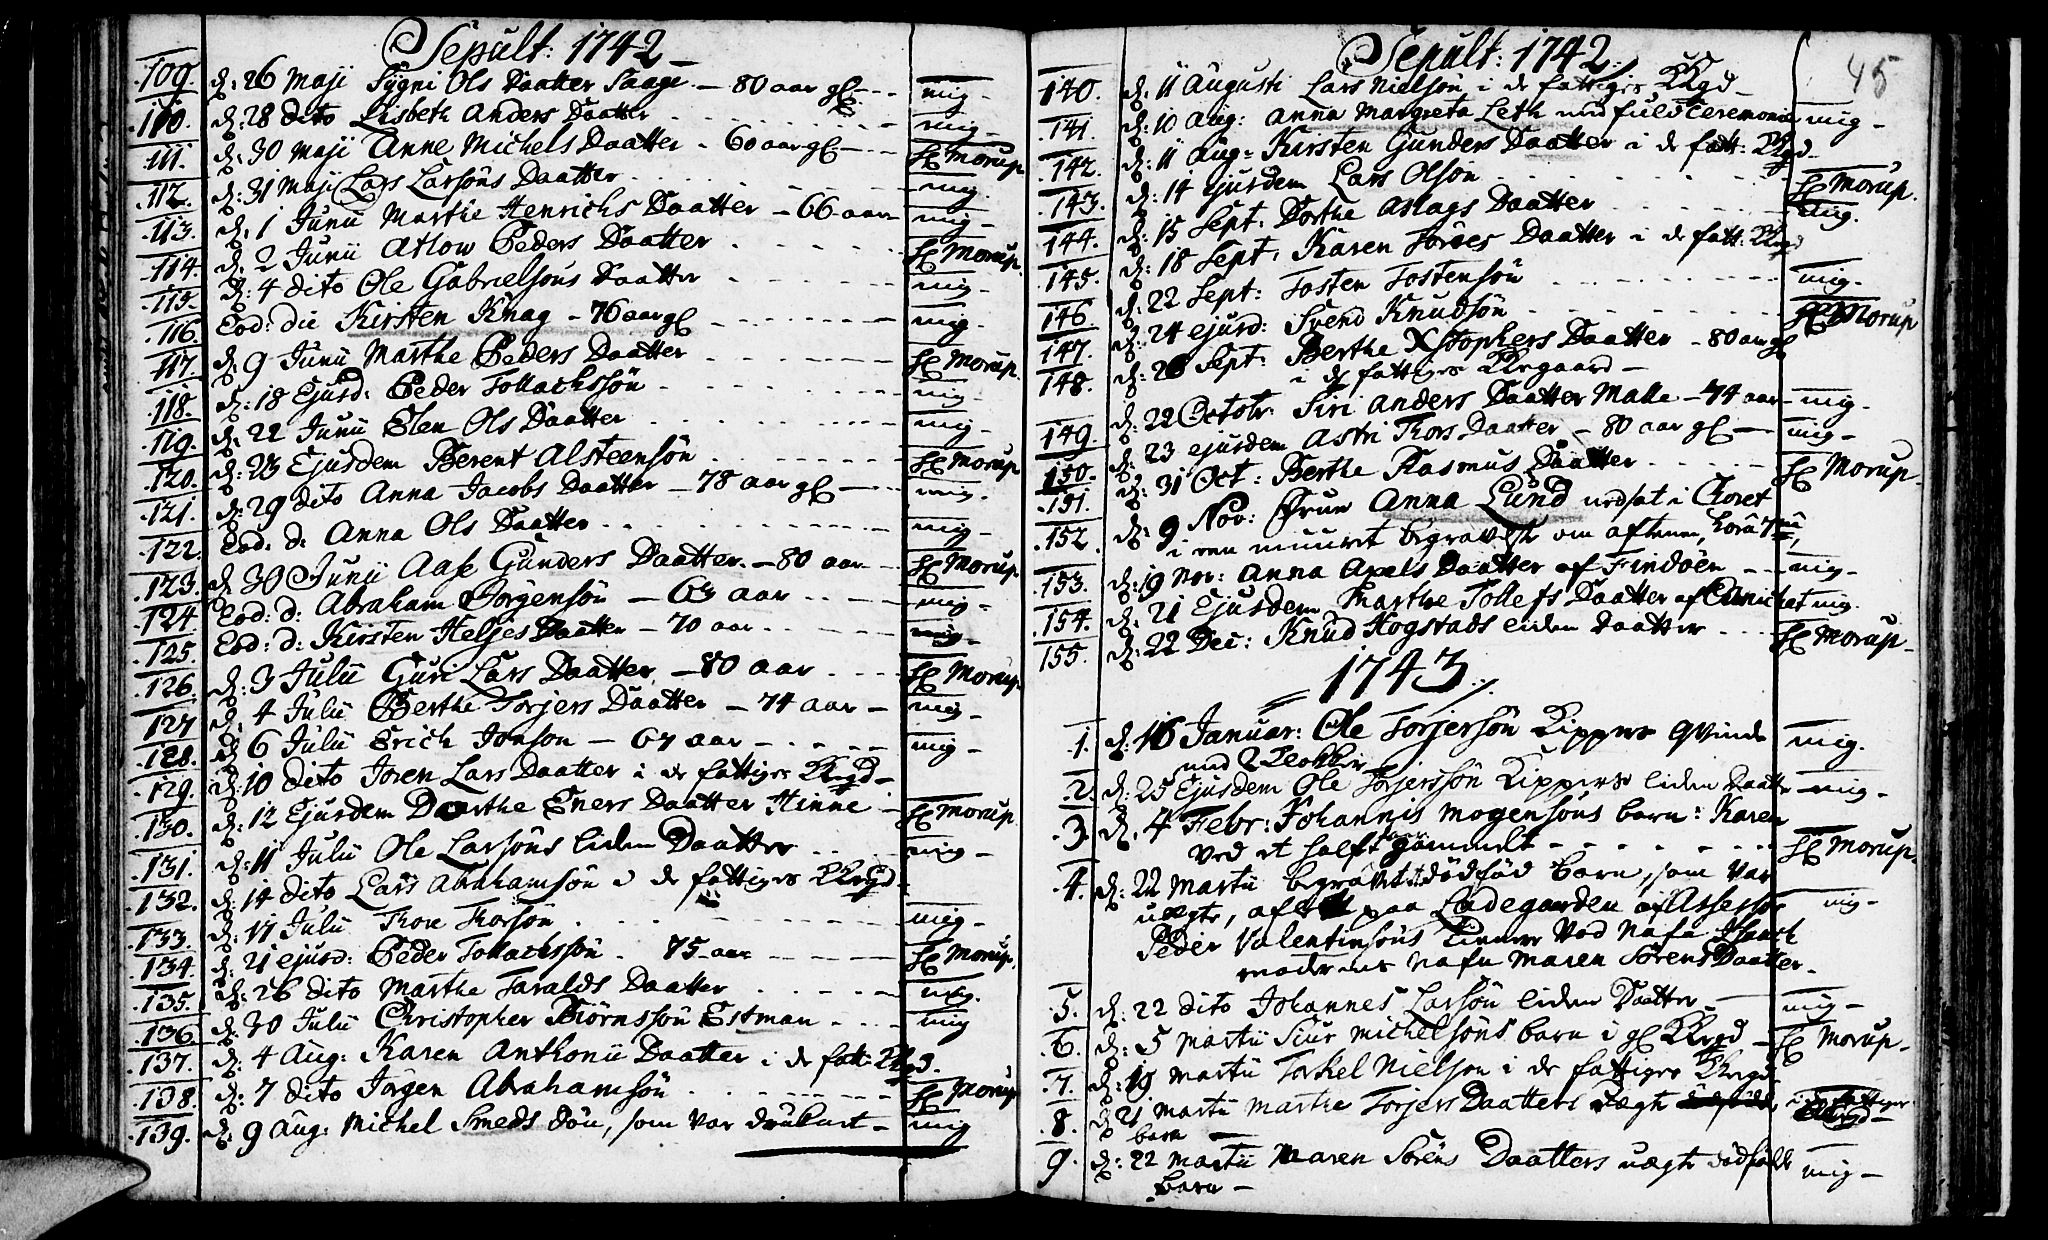 Sepult: 1742
109. d: 26 Maji Sygni Ols Daatter Saage - 80 aar gl - mig -
110. d: 28 dito Lisbeth Anders Daatter - mig -
111. d: 30 Maji Anne Michels Daatter - 60 aar gl - Hr Morup
112. d: 31 Maji Lars Larsöns Daatter - mig
113. d: 1 Junii Marthe Henrichs Daatter - 66 aar - mig -
114. d: 2 Junii Atlow Peders Daatter - Hr Morup.
115. d: 4 dito Ole Gabrielsöns Daatter - mig -
116. Eod: die Kirsten Knag - 76 aar gl - mig -
117. d: 9 Junii Marthe Peders Daatter - Hr Morup.
118. d: 18 Ejusd: Peder Tollachssön - mig -
119. d: 22 Junii Elen Ols Daatter - mig -
120. d: 23 Ejusdem Berent Alsteensön - Hr Morup
121. d: 29 dito Anna Jacobs Daatter - 78 aar gl - mig -
122. Eod: d: Anna Ols Daatter - mig -
123. d: 30 Junii Aase Gunders Daatter - 80 aar - Hr Morup
124 Eod: d: Abraham Börgensön - 63 aar - mig -
125. Eod: d: Kirsten Heljes Daatter - 70 aar - mig -
126. d: 3 Julii Guri Lars Daatter - 80 aar - Hr Morup
127 d: 4 Julii Berthe Torjers Daatter - 74 aar - mig -
128. d: 6 Julii Erich Jonson - 67 aar - mig -
129. d: 10 dito Joren Lars Daatter i de fattiges Kkrgd -
130. d: 12 Ejusdem Dorthe Eners Daatter Hinne - Hr Morup
131. d: 11 Julii Ole Larsöns liden Daatter - mig -
132. d: 14 dito Lars Abrahamsön i de fattiges Kkrgd
133. d: 17 Julii Thore Thorsön - mig -
134. d: 21 ejusd: Peder Tollachssön - 75 aar - Hr Morup.
135. d: 26 dito Marthe Taralds Daatter - mig.
136 d: 30 Julii Christopher Biörnssön Estman - mig
137. d: 4 Aug: Karen Anthonii Daatter i de fatt: Kkrgd.
138 d: 7 dito Jörgen Abrahamsön - Hr Morup
139. d: 9 Aug: Michel Smeds Sön, som var druknet - mig
Sepult: 1742. 45
140. d: 11 Augusti Lars Nielsön i de fattiges Kkrgd -
141. d: 10 Aug: Anna Margreta Leth med fuld Ceremonie mig -
142. d: 11 Aug: Kirsten Gunders Daatter i de fatt: Kkrgd -
143. d: 14 ejusdem Lars Olsön - Hr Morup.
144. d: 15 Sept. Dorthe Aslags Daatter - mig.
145. d: 18 Sept. Karen Torses Daatter i de fatt: Kkrgd
146 d: 22 Sept: Tosten Tostensön - mig -
147. d: 24 ejusd: Svend Knudsön - Hr Morup
148. d: 26 Sept: Berthe Xstophers Daatter - 80 aar gl
i de fattiges Kkregaard -
149. d: 22 Octobr: Siri Anders Daatter Malle - 74 aar - mig -
150. d: 23 ejusdem Astri Thors Daatter - 80 aar gl - mig -
151. d: 31 Oct: Berthe Rasmus Daatter - Hr Morup -
152. d: 9 Nov: Frue Anna Lund nedsat i Choret
i een muuret begravelse om aftenen, hora 7
153. d: 19 Nov: Anna Axels Daatter af Findöen - mig -
154. d: 21 Ejusdem Marthe Tollefs Daatter af mig.
155. d: 22 Dec: Knud Hogstads liden Daatter - Hr Morup -
1743
1. d: 16 Januar: Ole Torjersön Kippers Qvinde mig.
med 2 Klokker
2. d: 25 Ejusdem Ole Torjerssön Kippers liden Daatter - mig -
3. d. 4 Febr: Johannis Mogensöns barn: Karen
Ved et half aar gammelt - Hr Morup.
4. d: 22 Martii begravet dödföd barn, som var
uægte, paa Ladegaarden af Assessor mig -
Peder Valentinsöns tienere Ved Nafn
moderens nafn Maren Sörens Daatter -
5. d: 22 dito Johannes Larsön liden Daatter - mig -
6. d: 5 Martii Siur Michelsöns barn i gl Kkrgd - Hr Morup -
7. d: 19 Martii Torkel Nielsön i de fattiges Kkrgd
8. d: 21 Martii Marthe Torjers Daatters uægte i de fattiges
barn - Kkrgd -
9. d: 22 Martii Maren Sörens Daatters uægte dödfödt mig -
barn -